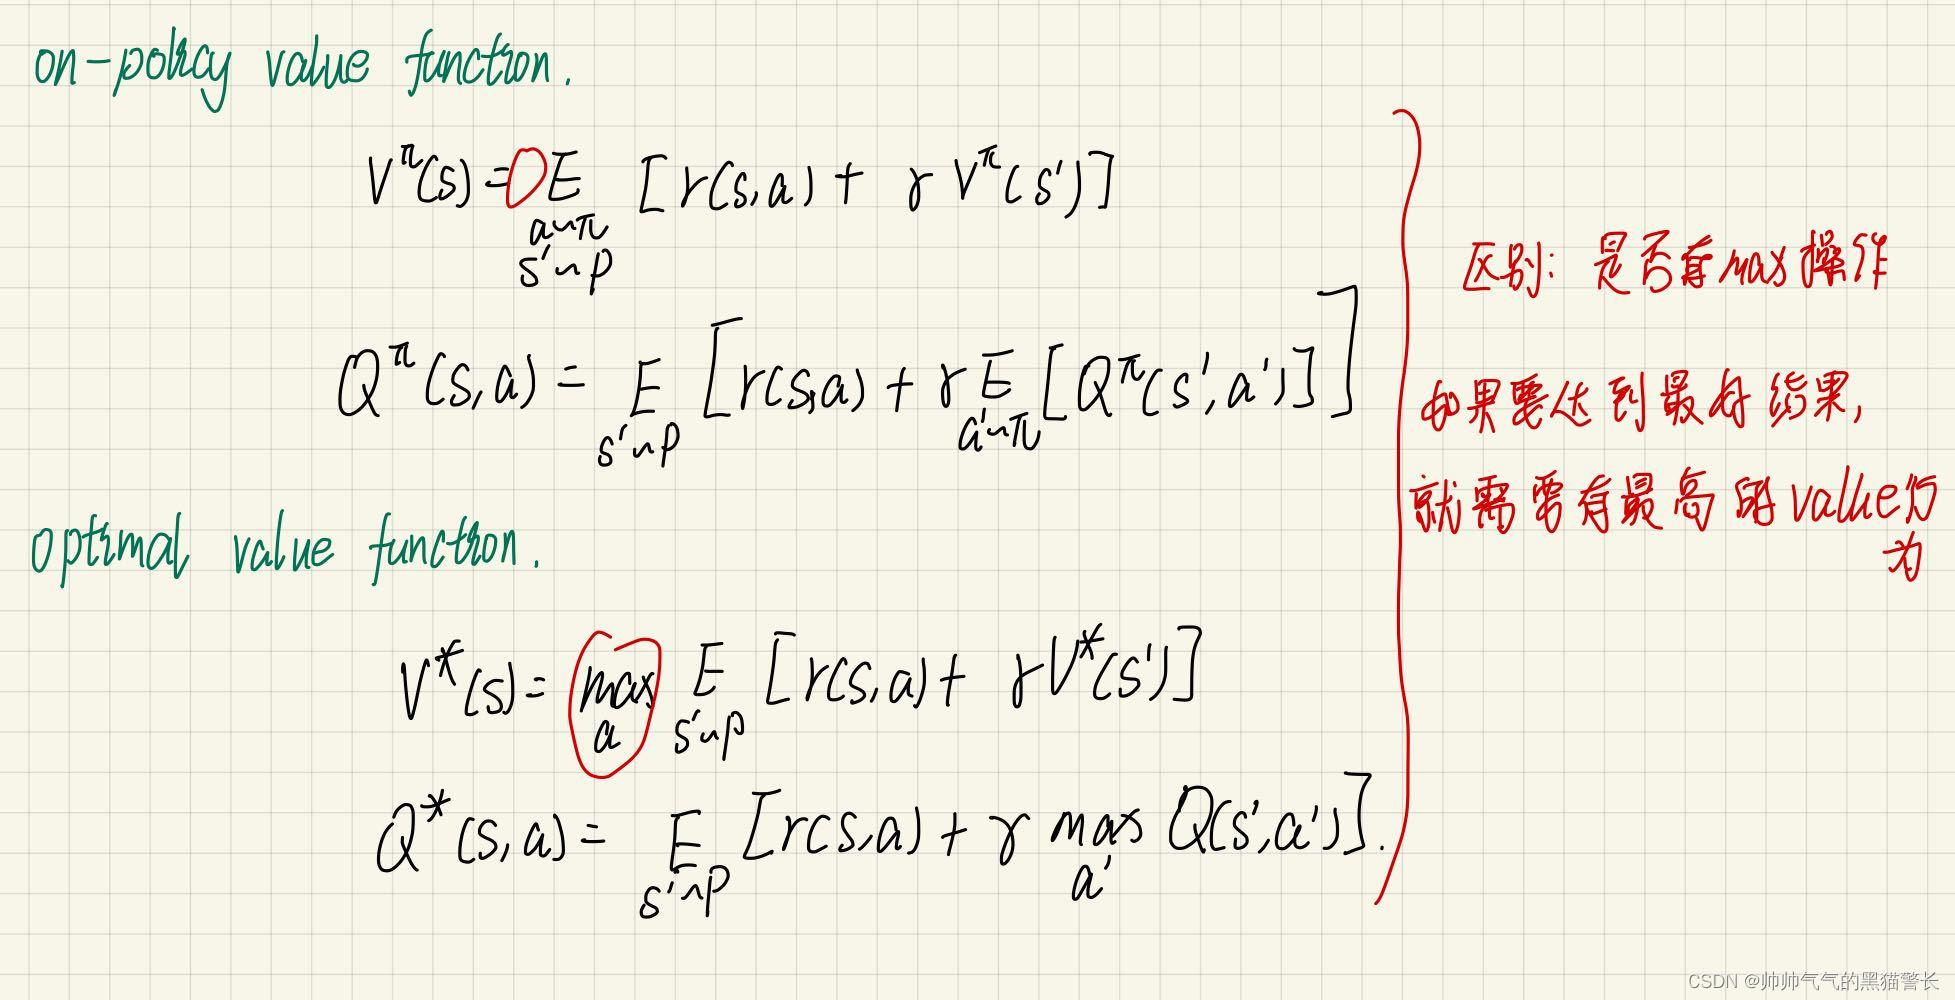 on-policy value function.
V^π(s) = E_{a~π, s'~p} [r(s,a) + γ V^π(s')]
Q^π(s,a) = E_{s'~p} [r(s,a) + γ E_{a'~π} [Q^π(s',a')]]
optimal value function.
V*(s) = max_a E_{s'~p} [r(s,a) + γ V*(s')]
Q*(s,a) = E_{s'~p} [r(s,a) + γ max_{a'} Q(s',a')].
区别: 是否有max操作
如果要达到最好结果,
就需要有最高的value行
为
CSDN @帅帅气气的黑猫警长